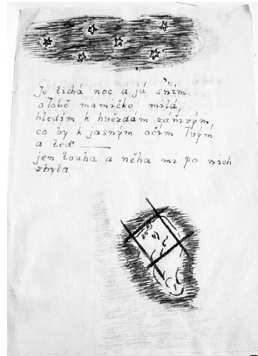 Je tichá noc a já sním
o Tobě mamičko, milá,
hledím k hvězdám zářivým,
co by k jasným očím Tvým
a teď
jen touha a něha mi po nich
zbyla